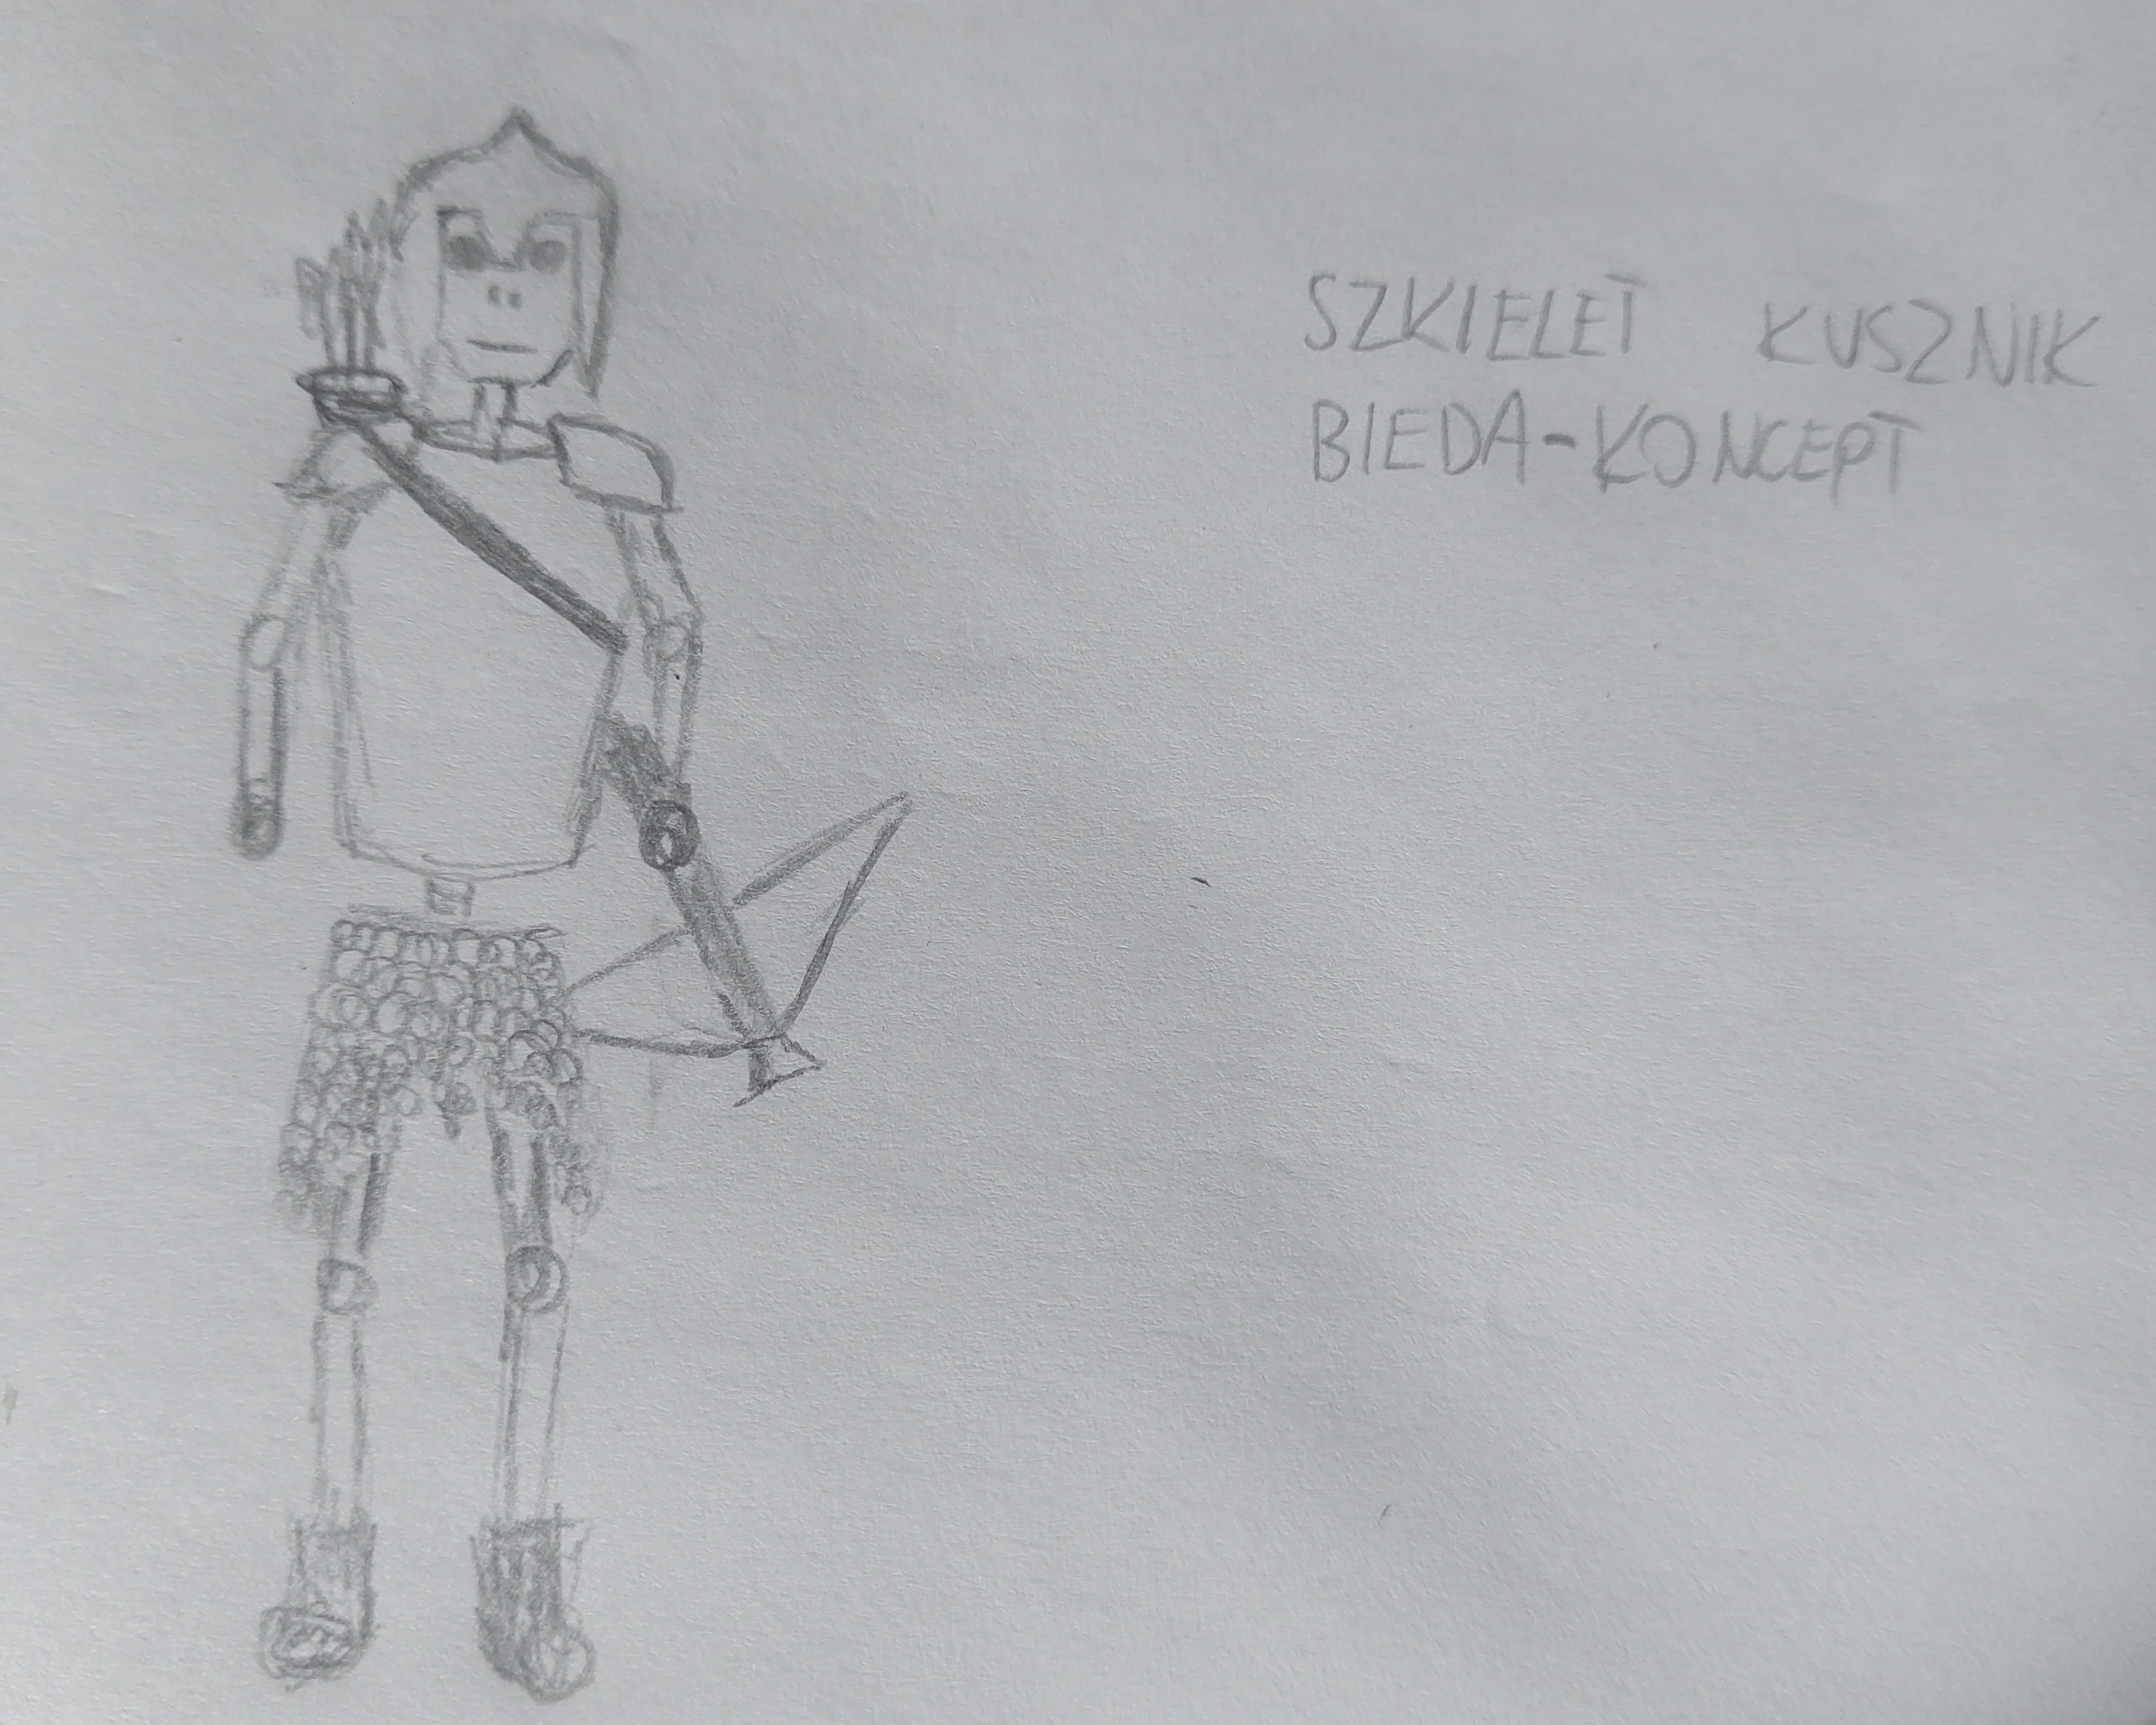 SZKIELET KUSZNIK
BIEDA-KONCEPT